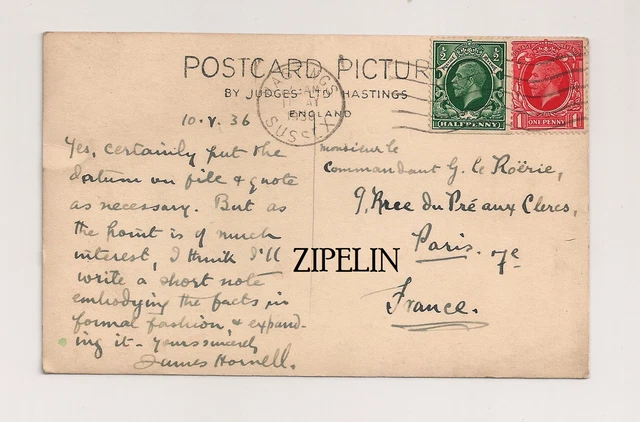 POSTCARD PICTUR
BY JUDGES' LTD HASTINGS
ENGLAND
HASTINGS
SUSSEX
½ ½
HALFPENNY
1 ONE PENNY 1
10.V.36
Yes, certainly put the
datum on file & quote
as necessary. But as
the point is of much
interest, I think I'll
write a short note
embodying the facts in
formal fashion, & expand-
ing it - yours sincerely
James Hornell.
Monsieur le
Commandant G. le Roërie,
9, Rue du Pré aux Clercs,
Paris. 7e
France.
ZIPELIN